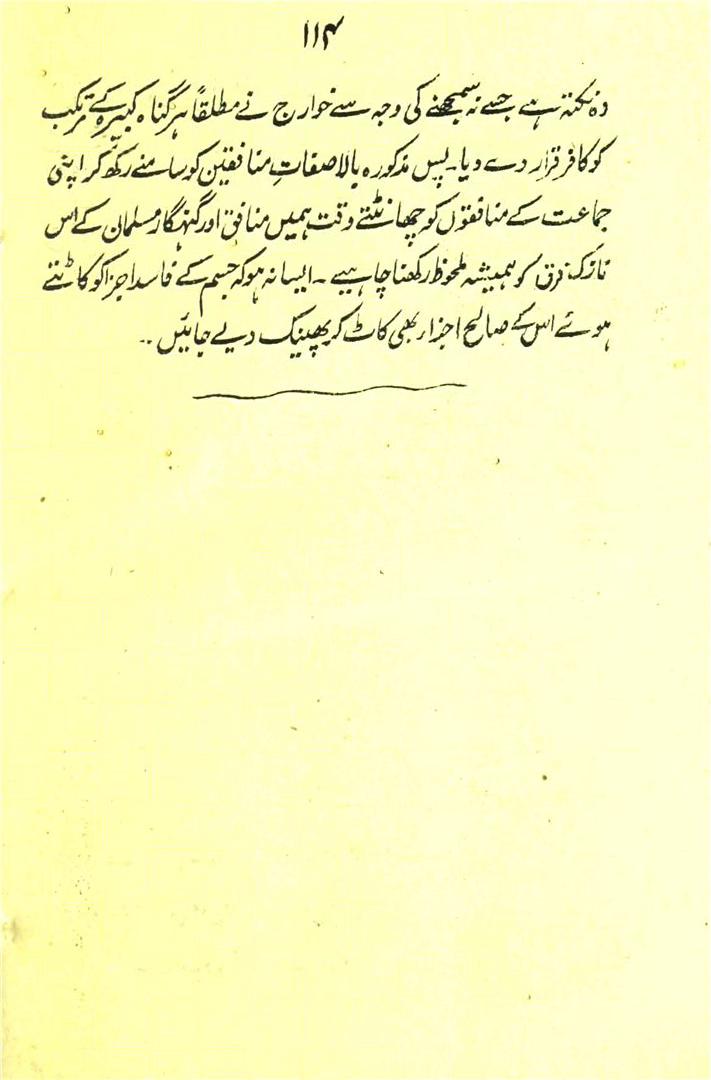 ۱۱۴
وہ نکتہ ہے جسے نہ سمجھنے کی وجہ سے خوارج نے مطلقاً ہر گناہ کبیرہ کے مرتکب
کو کافر قرار دے دیا۔ پس مذکورہ بالا صفاتِ منافقین کو سامنے رکھ کر اپنی
جماعت کے منافقوں کو چھانٹتے وقت ہمیں منافق اور گنہگار مسلمان کے اس
نازک فرق کو ہمیشہ ملحوظ رکھنا چاہیے۔ ایسا نہ ہو کہ جسم کے فاسد اجزا کو کاٹتے
ہوئے اس کے صالح اجزاء بھی کاٹ کر پھینک دیے جائیں۔۔